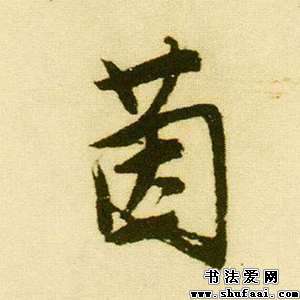 茵
书法爱网
www.shufaai.com